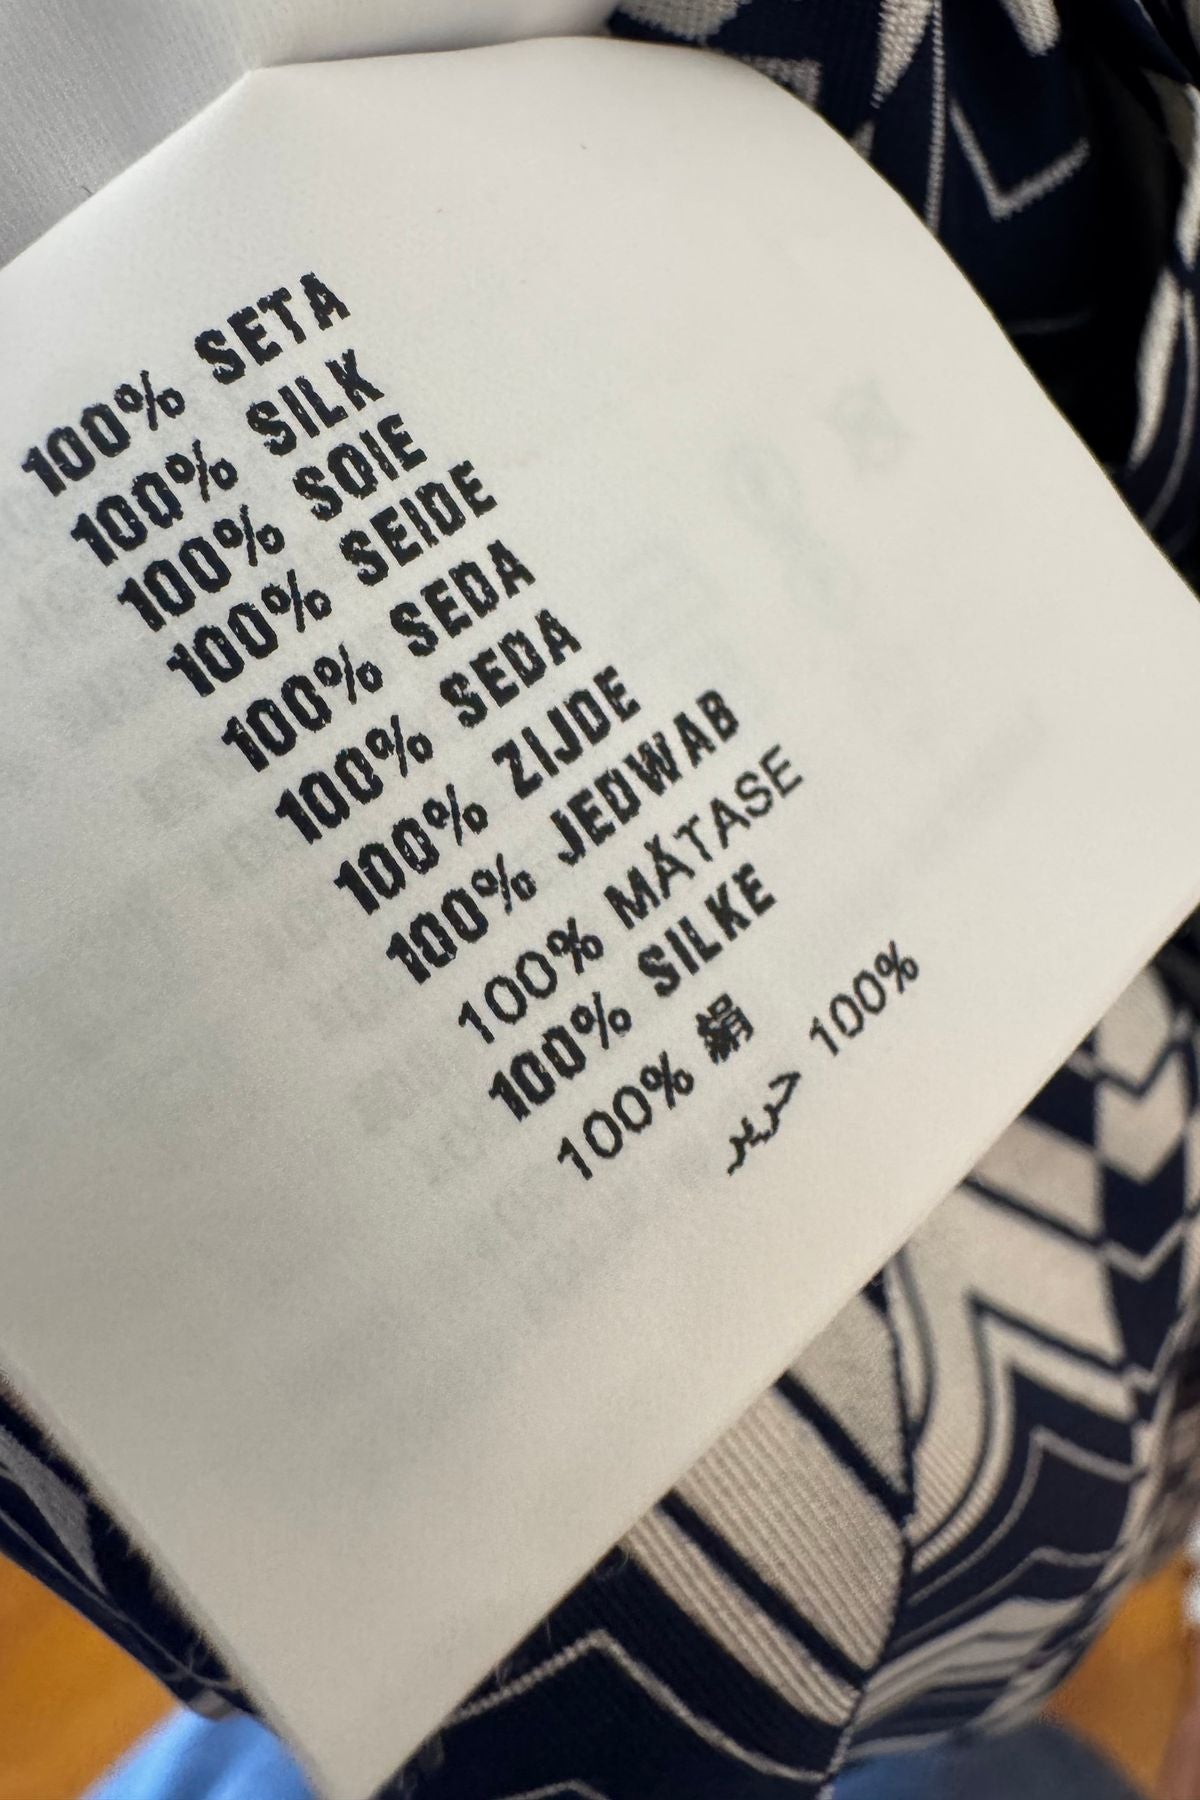 100% SETA
100% SILK
100% SOIE
100% SEIDE
100% SEDA
100% SEDA
100% ZIJDE
100% JEDWAB
100% MĂTASE
100% SILKE
100% 絹
100% حرير